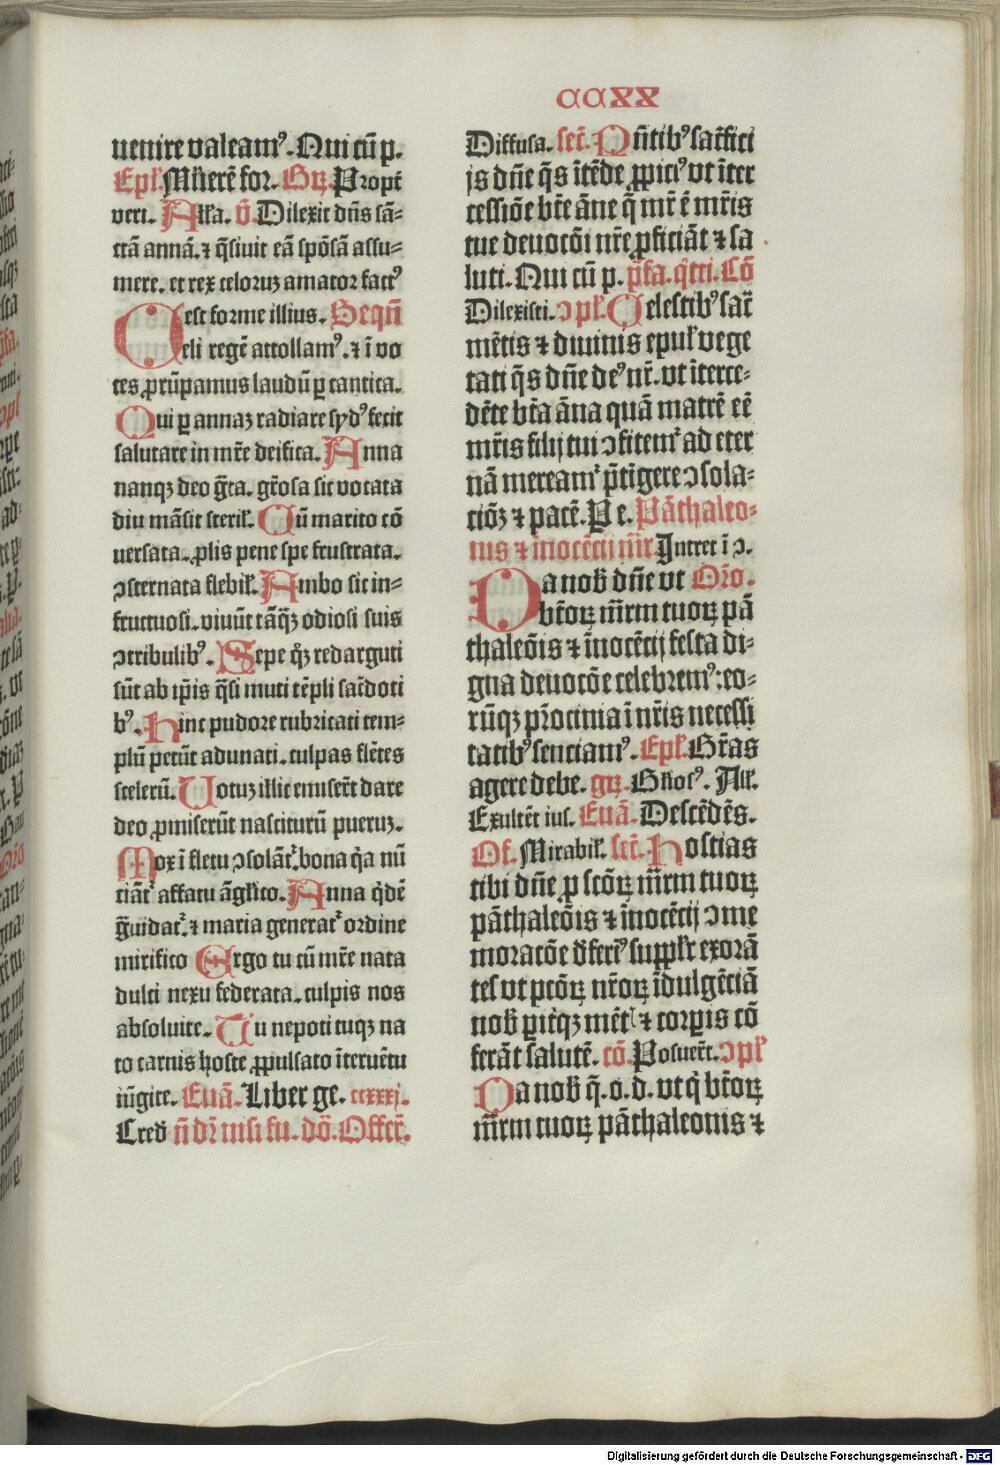 CCXX
uenire valeamꝰ. Qui cū p.
Epl̄. Ml̄ierē for. Gꝝ. Propt̄
veri. Alla. v̄. Dilexit dn̄s sā-
ctā annā. ⁊ q̄siuit eā spōsā assu-
mere. et rex celoruꝫ amator factꝰ
est forme illius. Sequn̄
Celi regē attollamꝰ. ⁊ ī vo
tes prūpamus laudū ꝑ cantica.
Qui ꝑ annaꝫ radiare sydꝰ fecit
salutare in mr̄e deifica. Anna
nanqꝫ deo gr̄ta. gr̄osa sit vocata
diu māsit steril̄. Cū marito cō
uersata. prolis pene spe frustrata.
ↄsternata flebil̄. Ambo sic in-
fructuosi. viuūt tāq̄ꝫ odiosi suis
ↄtribulibꝰ. Sepe qꝫ redarguti
sūt ab ip̄is q̄si muti tēpli sac̄doti
bꝰ. Hinc pudore rubricati tem-
plū petūt adunati. culpas flētes
scelerū. Uotuꝫ illic emiser̄t dare
deo ꝓmiserūt nasciturū pueruꝫ.
Mox ī fletu ↄsolāt̄. bona q̄a nū
ciāt̄ affatu āgl̄ico. Anna q̄dē
gr̄uidat̄. ⁊ maria generat̄ ordine
mirifico Ergo tu cū mr̄e nata
dulci nexu federata. culpis nos
absoluite. Tu nepoti tuqꝫ na
to carnis hoste ꝓpulsato īteruētu
iūgite. Euā. Liber ge. ccxxxj.
Cred n̄ dr̄ nisi fu. dō. Offer̄.
Diffusa. sec̄. Pn̄tibꝰ sac̄fici
js dn̄e q̄s ītēde ꝓpiciꝰ vt īter
cessiōe bt̄e āne q̄ mr̄ ē mr̄is
tue deuocōi nr̄e ꝓficiāt ⁊ sa
luti. Qui cū p. p̄fa. q̄tti. Cō
Dilexisti. ↄpl̄. Celestibꝰ sac̄
mētis ⁊ diuinis epul̄ vege
tati q̄s dn̄e deꝰ nr̄. vt īterce-
dēte bt̄a āna quā matrē eē
mr̄is filij tui ↄfitemr̄ ad eter
nā mereamr̄ p̄tigere ↄsola-
ciōꝫ ⁊ pacē. P e. Pāthaleo-
nis ⁊ inocētij mr̄. Intret ī ↄ.
Da nob̄ dn̄e vt Orō.
bt̄oꝝ mr̄m tuoꝝ pā
thaleōis ⁊ īnocētij festa di-
gna deuocōe celebremꝰ: eo-
rūqꝫ pr̄ocinia ī nr̄is necessi
tatibꝰ senciamꝰ. Epl̄. Gr̄as
agere debe. gꝝ. Gl̄iosꝰ. All̄.
Exultēt ius. Euā. Descēdēs.
Of. Mirabil̄. sec̄. Hostias
tibi dn̄e ꝓ scōꝝ mr̄m tuoꝝ
pāthaleōis ⁊ īnocētij ↄme
moracōe d̄ferꝰ supplr̄ exorā
tes vt pccōꝝ nr̄oꝝ īdulgēciā
nob̄ pit̄qꝫ mēt̄ ⁊ corpis cō
ferāt salutē. cō. Posuer̄t. ↄpl̄
Da nob̄ q̄. o. d. vt q̄ bt̄oꝝ
mr̄m tuoꝝ pāthaleonis ⁊
Digitalisierung gefördert durch die Deutsche Forschungsgemeinschaft - DFG